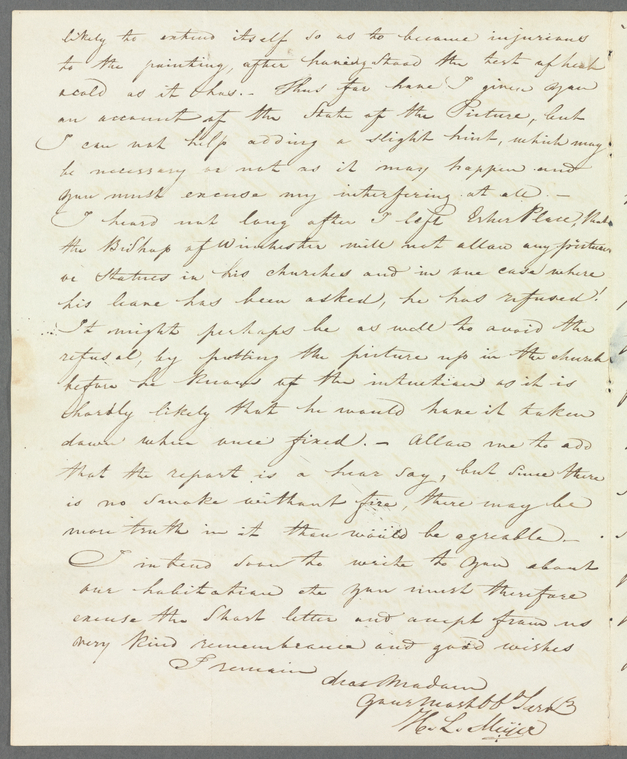 likely to extend itself so as to become injurious
to the painting, after having stood the test of heat
& cold as it has. – Thus far have I given you
an account of the State of the Picture, but
I can not help adding a slight hint, which may
be necessary or not as it may happen and
you must excuse my interfering at all. –
I heard not long after I left Esher Place, that
the Bishop of Winchester will not allow any pictures
or Statues in his churches and in one case where
his leave has been asked, he has refused!
It might perhaps be as well to avoid the
refusal, by putting the picture up in the church
before he knows of the intention as it is
hardly likely that he would have it taken
down when once fixed. – Allow me to add
that the report is a hear say, but since there
is no smoke without fire, there may be
more truth in it than would be agreable. –
I intend soon to write to you about
our habitation etc you must therefore
excuse the short letter and accept from us
very kind remembrance and good wishes
I remain
dear Madam
your most Obt Servt
H. L. Meijer